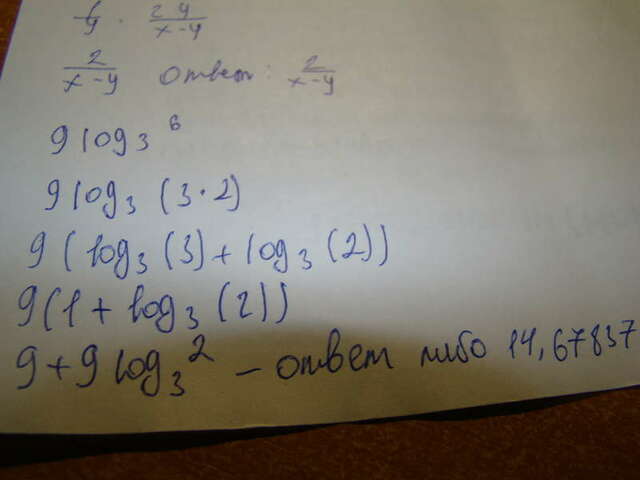 1/y · 2y/x-y
2/x-y ответ: 2/x-y
9log3 6
9log₃ (3·2)
9(log₃(3)+log₃(2))
9(1+log₃(2))
9+9log₃2 – ответ либо 14,67837